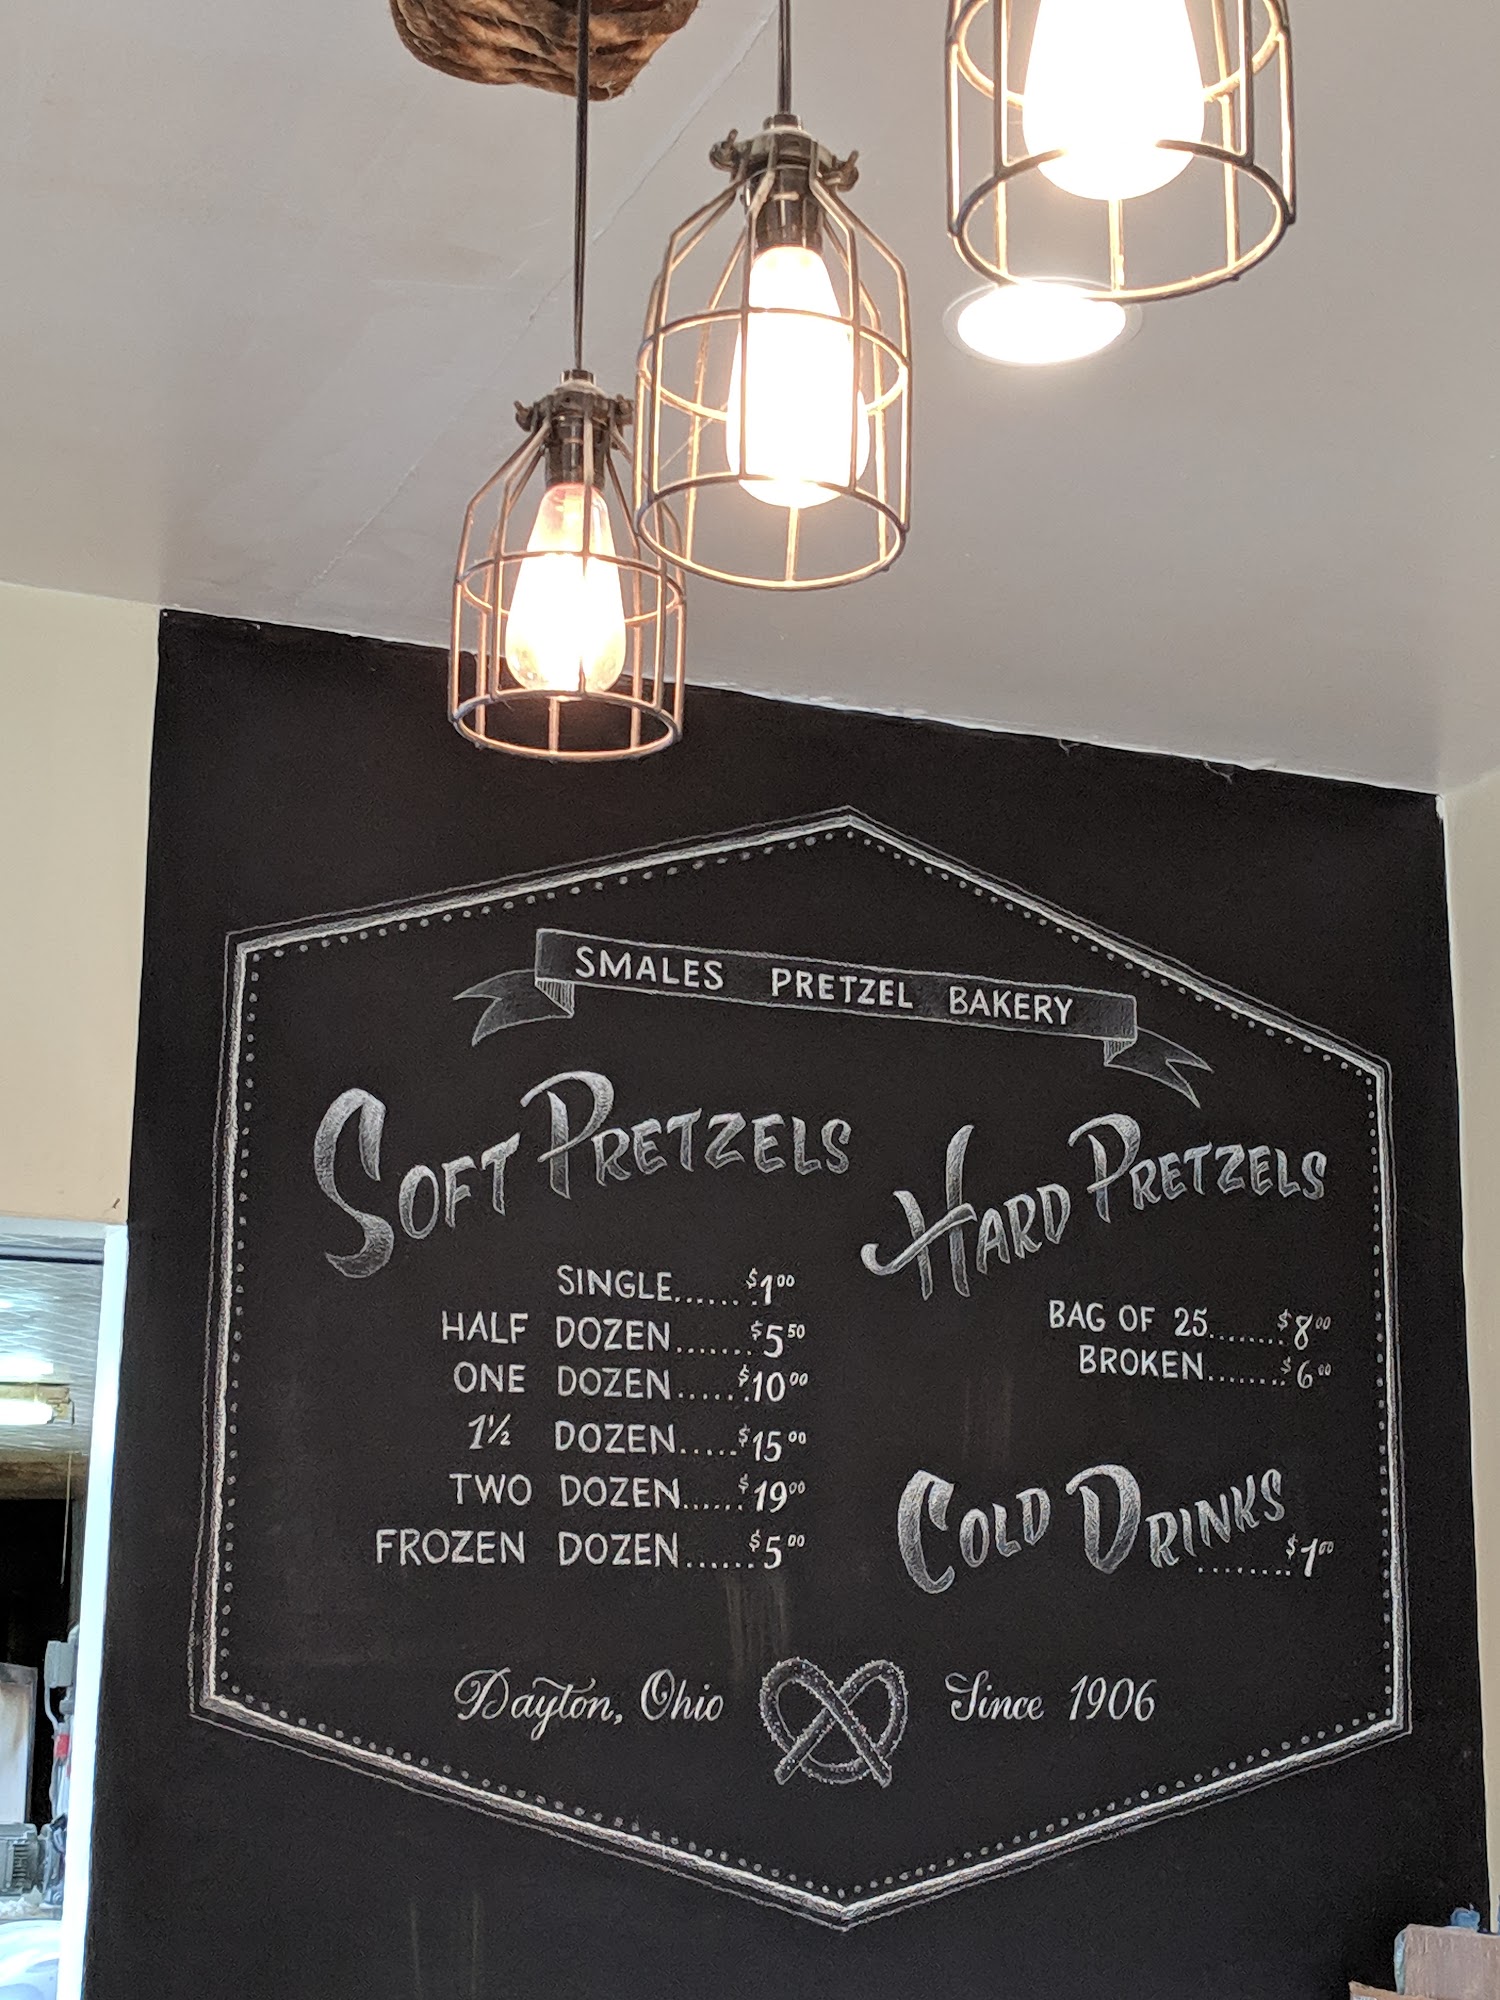 SMALES PRETZEL BAKERY
SOFT PRETZELS
SINGLE......$1.00
HALF DOZEN.......$5.50
ONE DOZEN......$10.00
1 1/2 DOZEN.....$15.00
TWO DOZEN......$19.00
FROZEN DOZEN......$5.00
HARD PRETZELS
BAG OF 25.......$8.00
BROKEN........$6.00
COLD DRINKS
........$1.00
Dayton, Ohio
Since 1906